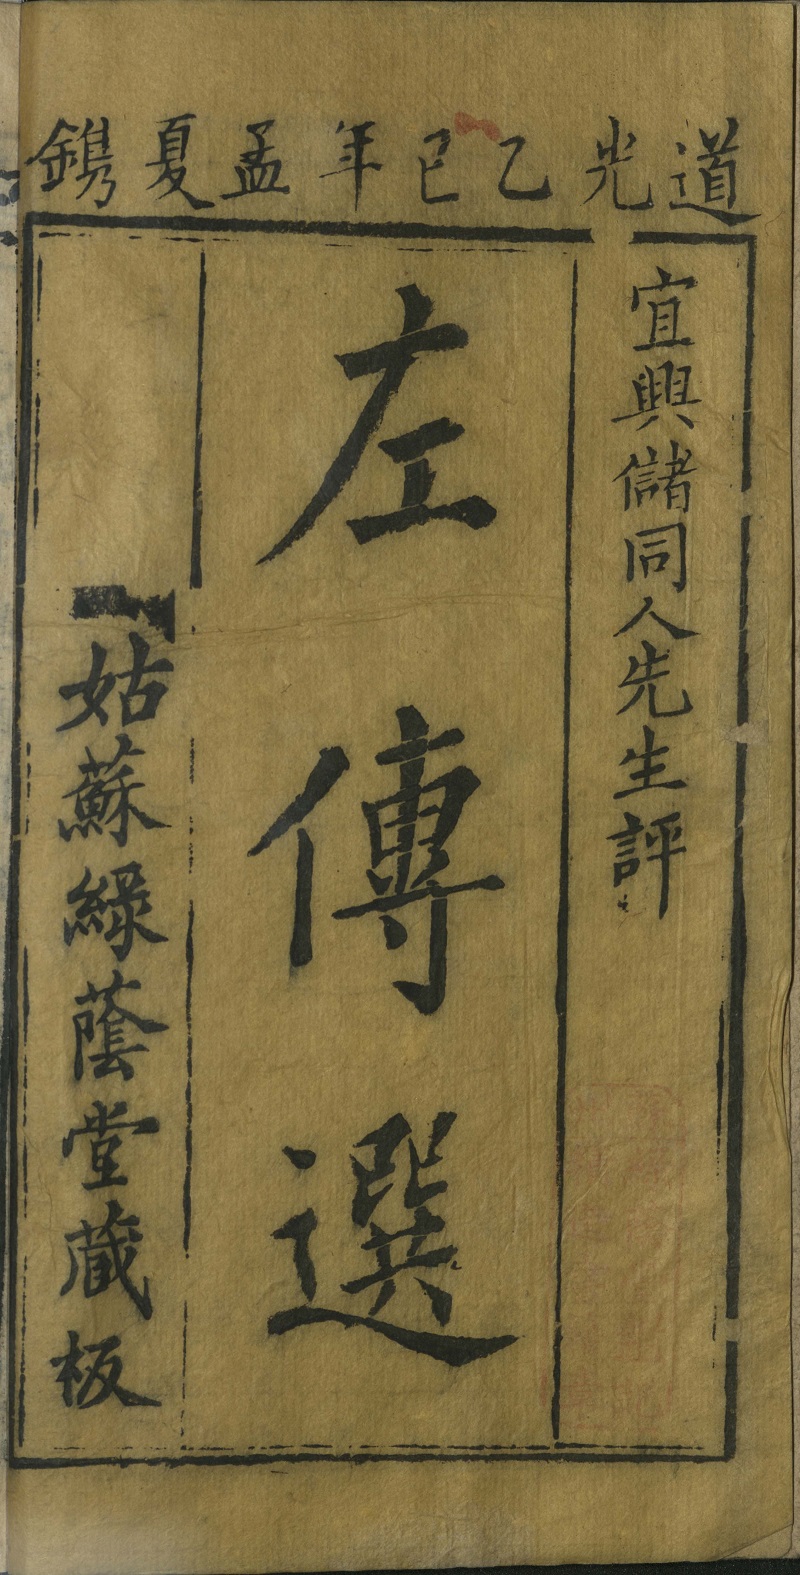 道光乙巳年孟夏鐫
宜興儲同人先生評
左傳選
姑蘇綠蔭堂藏板